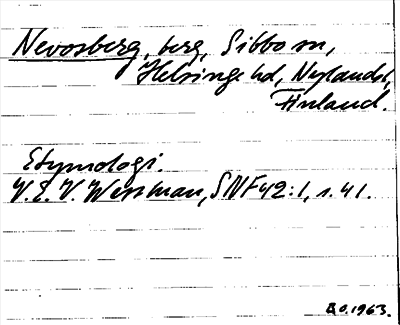 Nevosberg, berg, Sibbo sn,
Helsinge hd, Nylands l,
Finland.
Etymologi.
V.E.V. Wessman, SNF 42:1, s. 41.
1963.